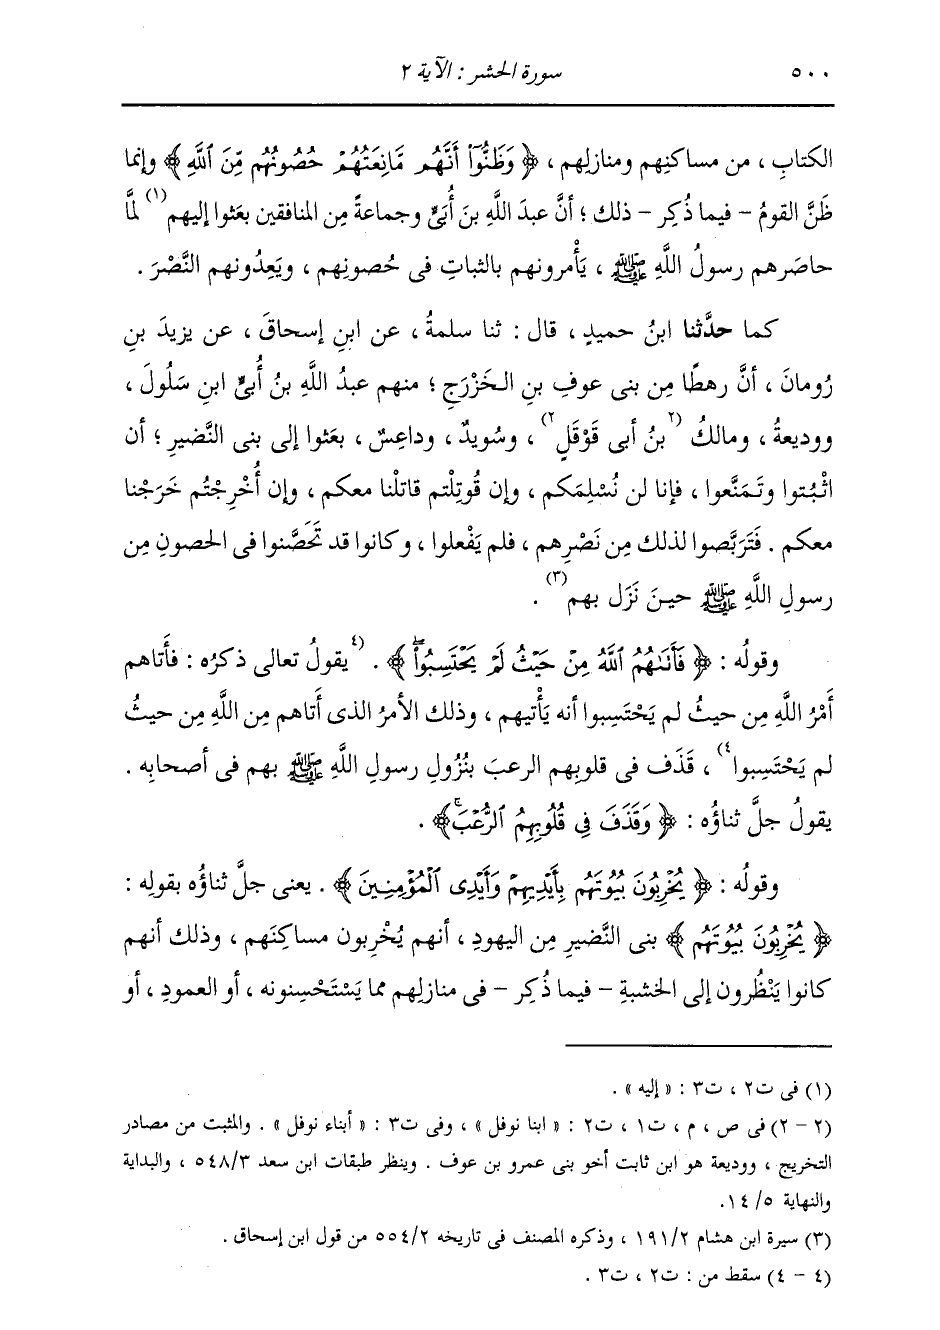 ٥٠٠ سورة الحشر : الآية ٢
الكتابِ ، من مساكنِهم ومنازلِهم ، ﴿ وَظَنُّوٓا۟ أَنَّهُم مَّانِعَتُهُمْ حُصُونُهُم مِّنَ ٱللَّهِ ﴾ وإنما
ظَنَّ القومُ – فيما ذُكِر – ذلك ؛ أنَّ عبدَ اللَّهِ بنَ أُبَىٍّ وجماعةً مِن المنافقين بعَثوا إليهم(١) لمَّا
حاصَرهم رسولُ اللَّهِ ﷺ ، يَأْمرونهم بالثباتِ فى حُصونِهم ، ويَعِدُونهم النَّصْرَ .
كما حدَّثنا ابنُ حميدٍ ، قال : ثنا سلمةُ ، عن ابنِ إسحاقَ ، عن يزيدَ بنِ
رُومانَ ، أنَّ رهطًا مِن بنى عوفِ بنِ الخَزْرَجِ ؛ منهم عبدُ اللَّهِ بنُ أُبىٍّ ابنِ سَلُولَ ،
ووديعةُ ، ومالكُ (٢بنُ أبى قَوْقَلٍ٢) ، وسُويدٌ ، وداعِسٌ ، بعَثوا إلى بنى النَّضيرِ ؛ أن
اثْبُتوا وتَمَنَّعوا ، فإنا لن نُسْلِمَكم ، وإن قُوتِلْتم قاتلْنا معكم ، وإن أُخْرِجْتُم خَرَجْنا
معكم . فتَرَبَّصوا لذلك مِن نَصْرِهم ، فلم يَفْعلوا ، وكانوا قد تَحَصَّنوا فى الحصونِ مِن
رسولِ اللَّهِ ﷺ حينَ نَزَل بهم(٣) .
وقولُه : ﴿ فَأَتَىٰهُمُ ٱللَّهُ مِنْ حَيْثُ لَمْ يَحْتَسِبُوا۟ۖ ﴾ . (٤يقولُ تعالى ذكرُه : فأَتاهم
أَمْرُ اللَّهِ مِن حيثُ لم يَحْتَسِبوا أنه يَأْتيهم ، وذلك الأمرُ الذى أَتاهم مِن اللَّهِ مِن حيثُ
لم يَحْتَسِبوا٤) ، قَذَف فى قلوبِهم الرعبَ بنُزُولِ رسولِ اللَّهِ ﷺ بهم فى أصحابِه .
يقولُ جلَّ ثناؤُه : ﴿ وَقَذَفَ فِى قُلُوبِهِمُ ٱلرُّعْبَۚ ﴾ .
وقولُه : ﴿ يُخْرِبُونَ بُيُوتَهُم بِأَيْدِيهِمْ وَأَيْدِى ٱلْمُؤْمِنِينَ ﴾ . يعنى جلَّ ثناؤُه بقولِه :
﴿ يُخْرِبُونَ بُيُوتَهُم ﴾ بنى النَّضيرِ مِن اليهودِ ، أنهم يُخْرِبون مساكِنَهم ، وذلك أنهم
كانوا يَنْظُرون إلى الخشبةِ – فيما ذُكِر – فى منازلِهم مما يَسْتَحْسِنونه ، أو العمودِ ، أو
(١) فى ت٢ ، ت٣ : « إليه » .
(٢ – ٢) فى ص ، م ، ت١ ، ت٢ : « ابنا نوفل » ، وفى ت٣ : « أبناء نوفل » . والمثبت من مصادر
التخريج ، ووديعة هو ابن ثابت أخو بنى عمرو بن عوف . وينظر طبقات ابن سعد ٥٤٨/٣ ، والبداية
والنهاية ١٤/٥.
(٣) سيرة ابن هشام ١٩١/٢ ، وذكره المصنف فى تاريخه ٥٥٤/٢ من قول ابن إسحاق .
(٤ – ٤) سقط من : ت٢ ، ت٣ .